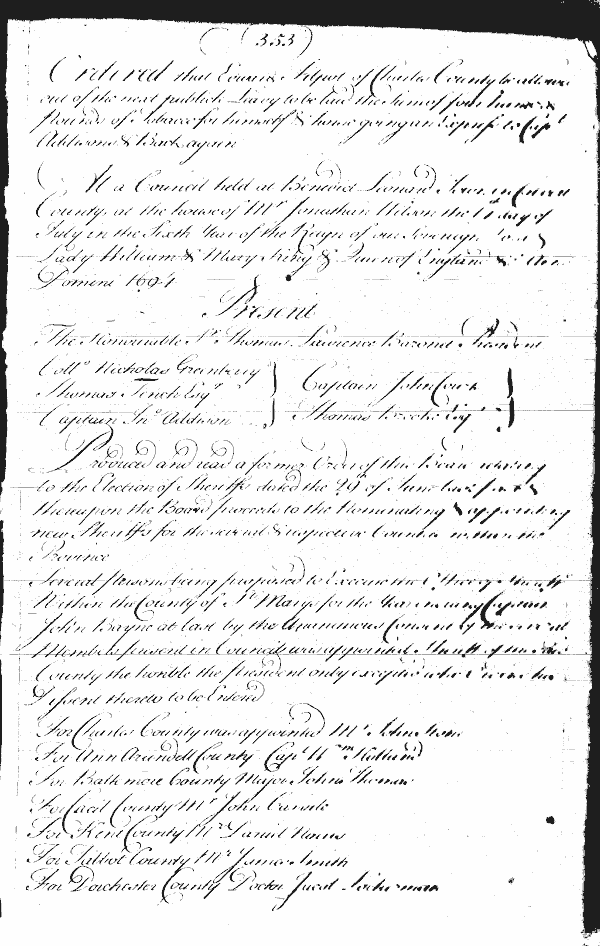 (353)
Ordered that Edward Philpot of Charles County be allowed
out of the next publick Leavy to be laid the Sume of four hundred
Pounds of Tobacco for himself & horse going an Express to Capt
Addisons & Back again
At a Council held at Benedict Leonard Town in
County at the house of Mr Jonathan Wilson the day of
July in the Sixth Year of the Reign of our Sovereign Lord &
Lady William & Mary King & Queen of England &c Ano
Domini 1694
Present
The Honourable Sr Thomas Lawrence Baronet President
Collo Nicholas Greenberry
Thomas Tench Esqr
Captain Jno Addison
Captain John Courts
Thomas Brooke Esqr
Produced and read a former Order of this Board relating
to the Election of Sheriffs dated the 29 of June last past &
thereupon the Board proceeds to the Nominating & appointing
new Sheriffs for the several & respective Counties within this
Province
Several persons being proposed to Execute the Office of Sheriff
Within the County of St Marys for the Year ensuing Captain
John Bayne at last by the Unanimous Consent of the several
Members present in Council was appointed Sheriff of the said
County the honble the president only excepted who desires his
Dissent thereto to be Entered
For Charles County was appointed Mr John
For Ann Arundell County Capt Wm Holland
For Baltimore County Major John Thomas
For Cecil County Mr John
For Kent County Mr Daniel Norris
For Talbot County Mr James Smith
For Dorchester County Doctor Jacob Lockerman